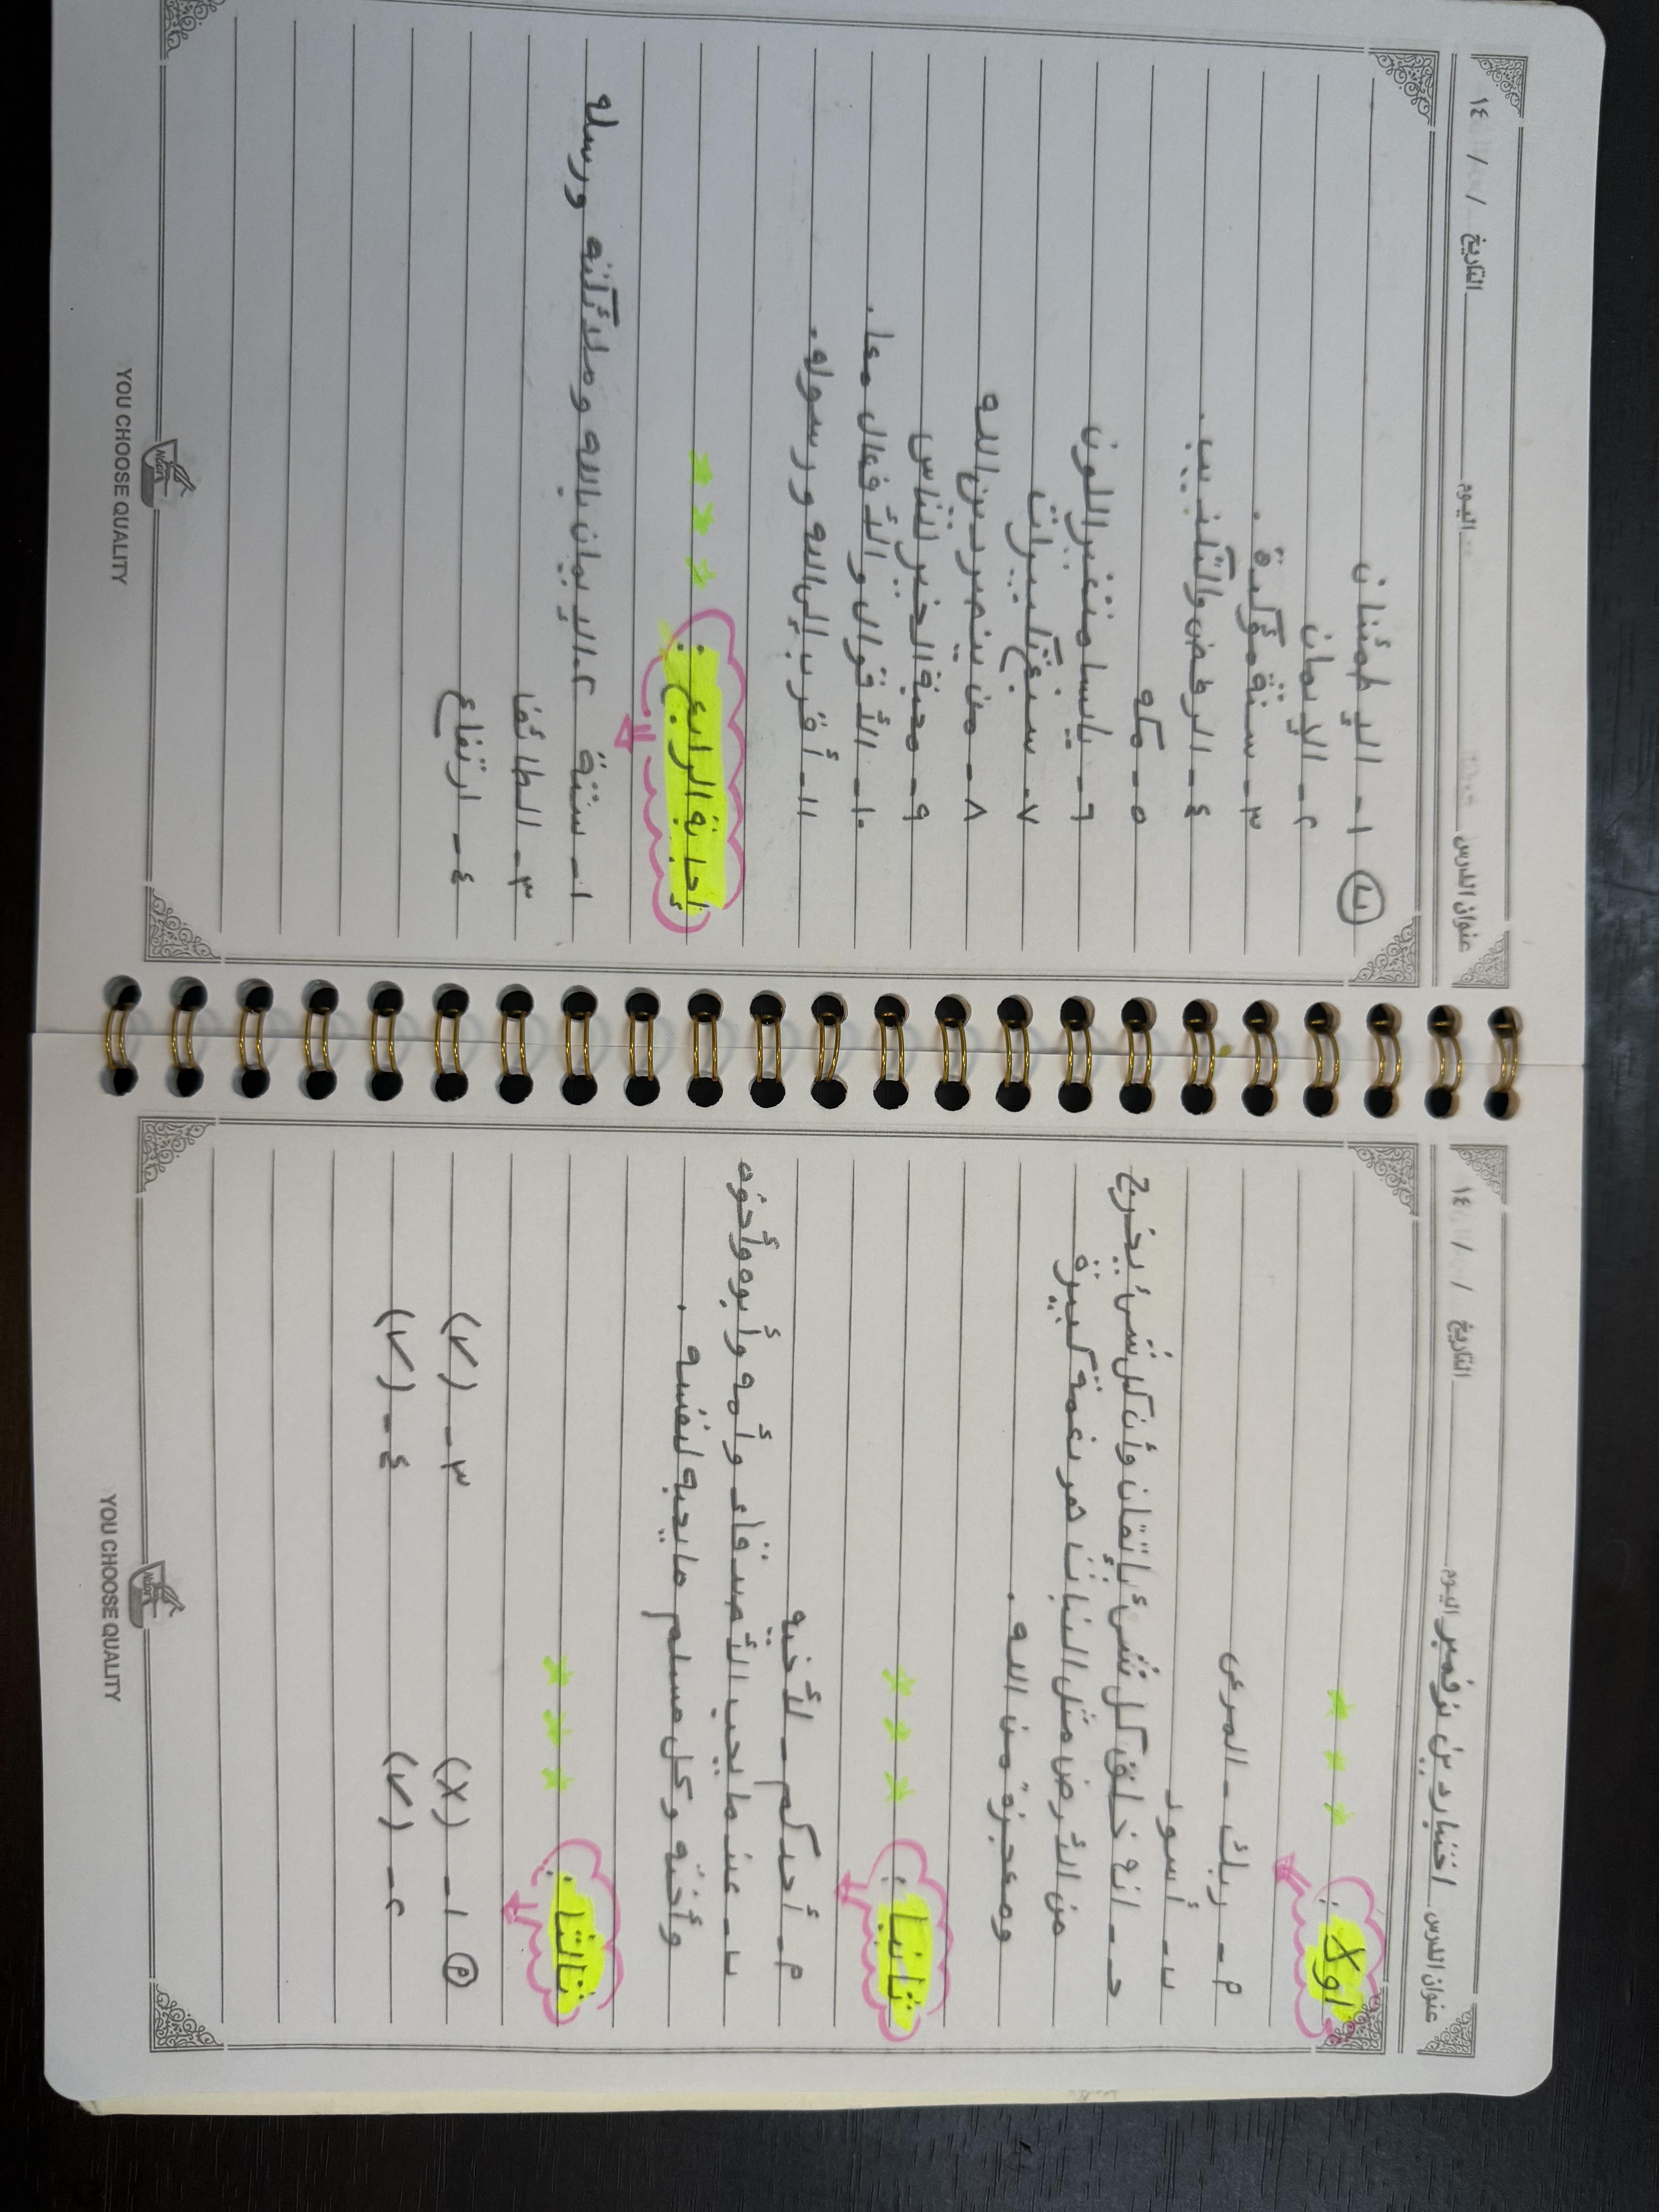 عنوان الدرس اختبار دين نوفمبر اليوم التاريخ / / ١٤
اولا :
م - ربك - المرعى
ب - أسود
حـ - انه خلق كل شىء بأتقان وأن كل شىء يخرج
من الأرض مثل النبات هر نعمة كبيرة
ومعجزة من الله .
ثانيا :
م - أحدكم - لأخيه
ب - عندما يحب الأصدقاء وأمه وأبوه وأخوه
وأخته وكل مسلم ما يحبه لنفسه .
ثالثا :
م ١ - (X) ٣ - (✓)
٢ - (✓) ٤ - (✓)
YOU CHOOSE QUALITY
عنوان الدرس اليوم التاريخ / / ١٤
ب ١ - الإطمئنان
٢ - الإيمان
٣ - ستة مؤكدة .
٤ - الرفض والتكذيب .
٥ - مكه
٦ - يابسا متغير اللون
٧ - سبع تكبيرات
٨ - من ينصر دين الله
٩ - محبة الخير للناس
١٠ - الأقوال والأفعال معا .
١١ - أقرب إلى الله ورسوله .
إجابة الرابع :
١ - ستة ٢ - الإيمان بالله وملائكته ورسله
٣ - الطائف
٤ - ارتفاع
YOU CHOOSE QUALITY